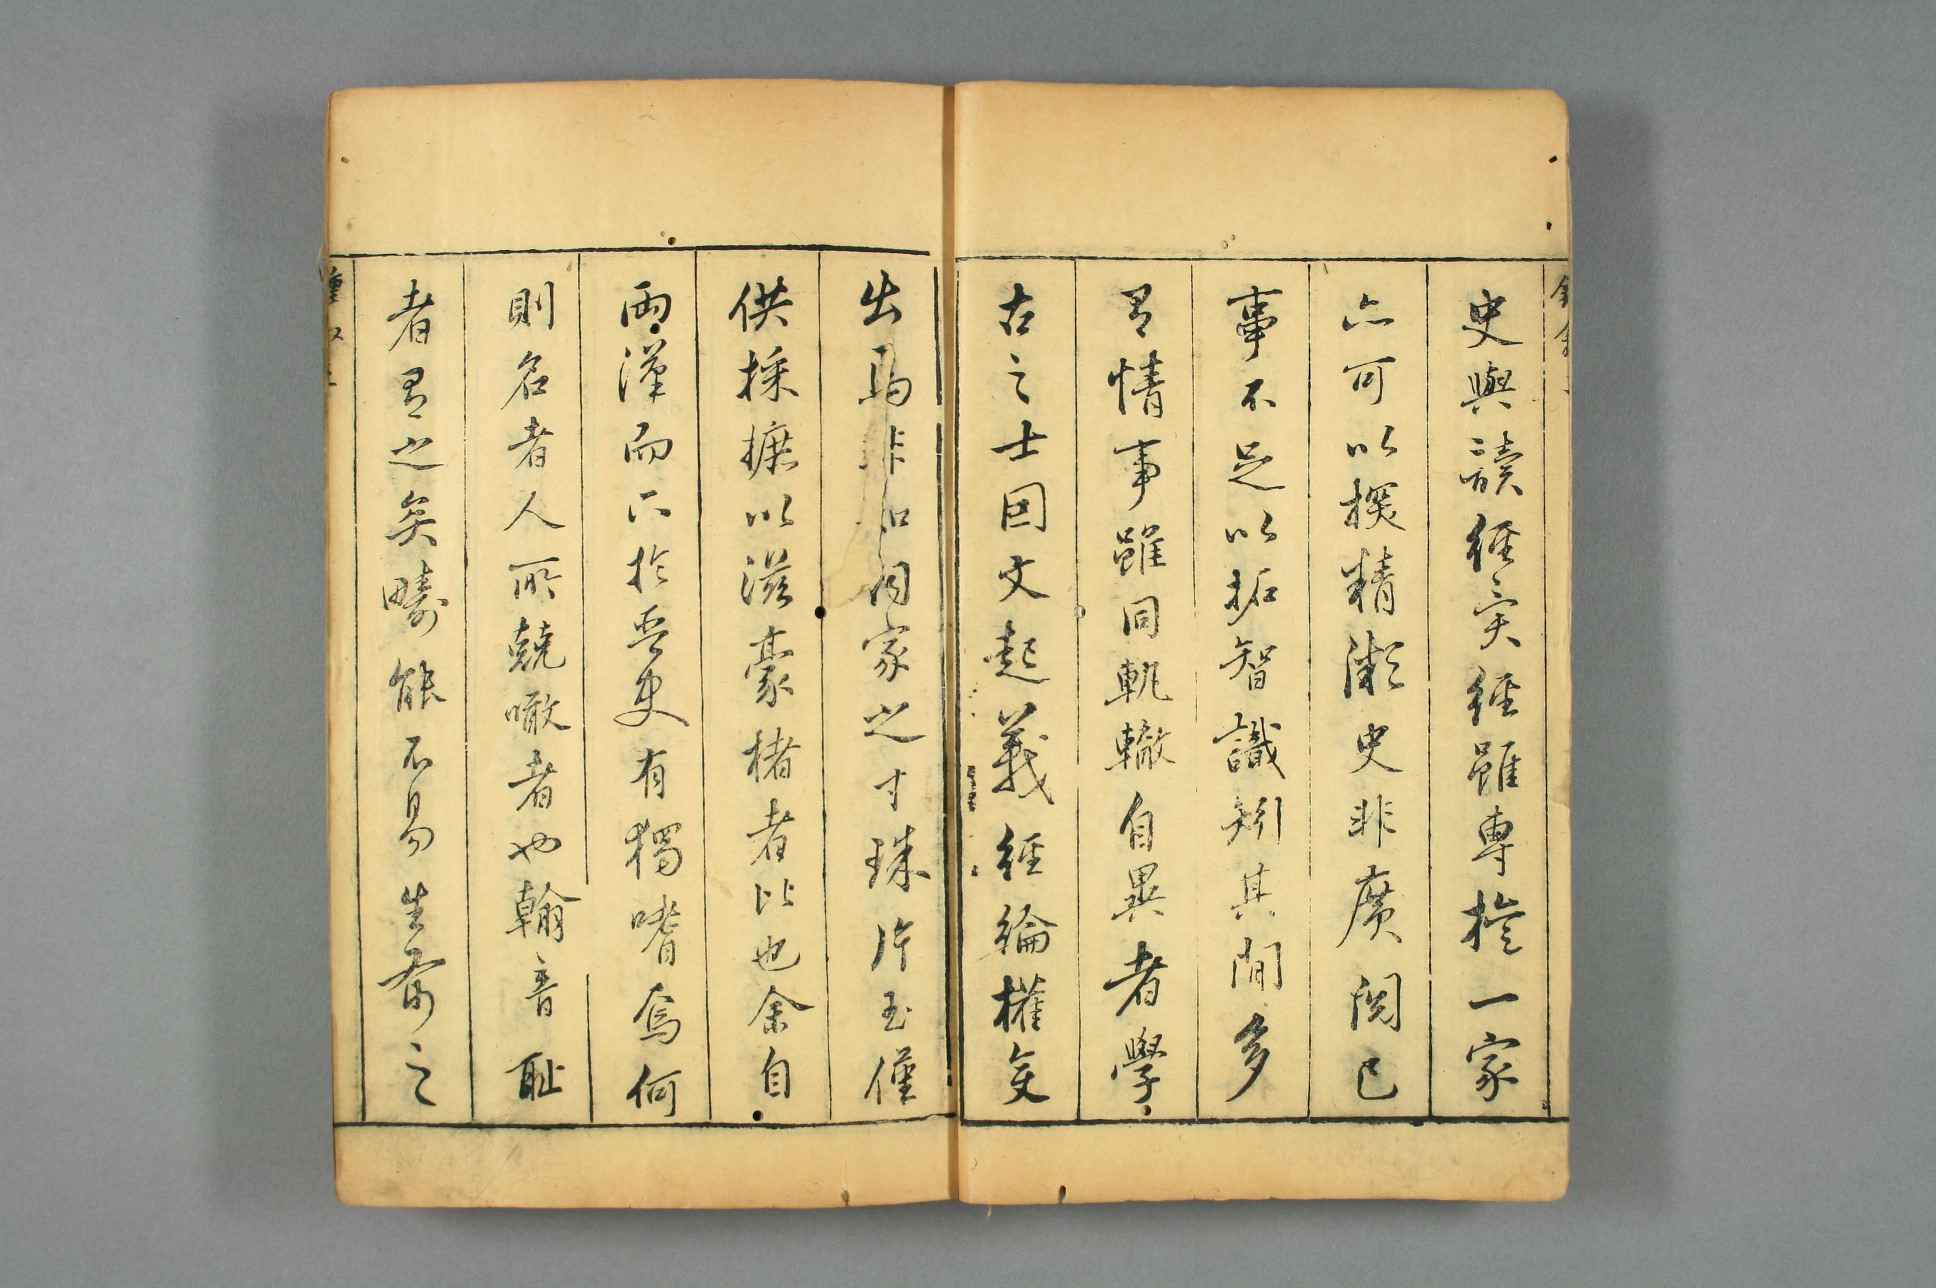 史與讀經異經雖專於一家
亦可以探精微史非廣閱已
事不足以拓智識矧其間多
有情事雖同軌轍自異者學
古之士因文起義經綸權變
出焉非知家之寸珠片玉僅
供採摭以滋豪楮者比也余自
兩漢而下於唐史有獨嗜焉何
則名者人所兢噉者也翰音恥
者有之矣疇能不易生齊之